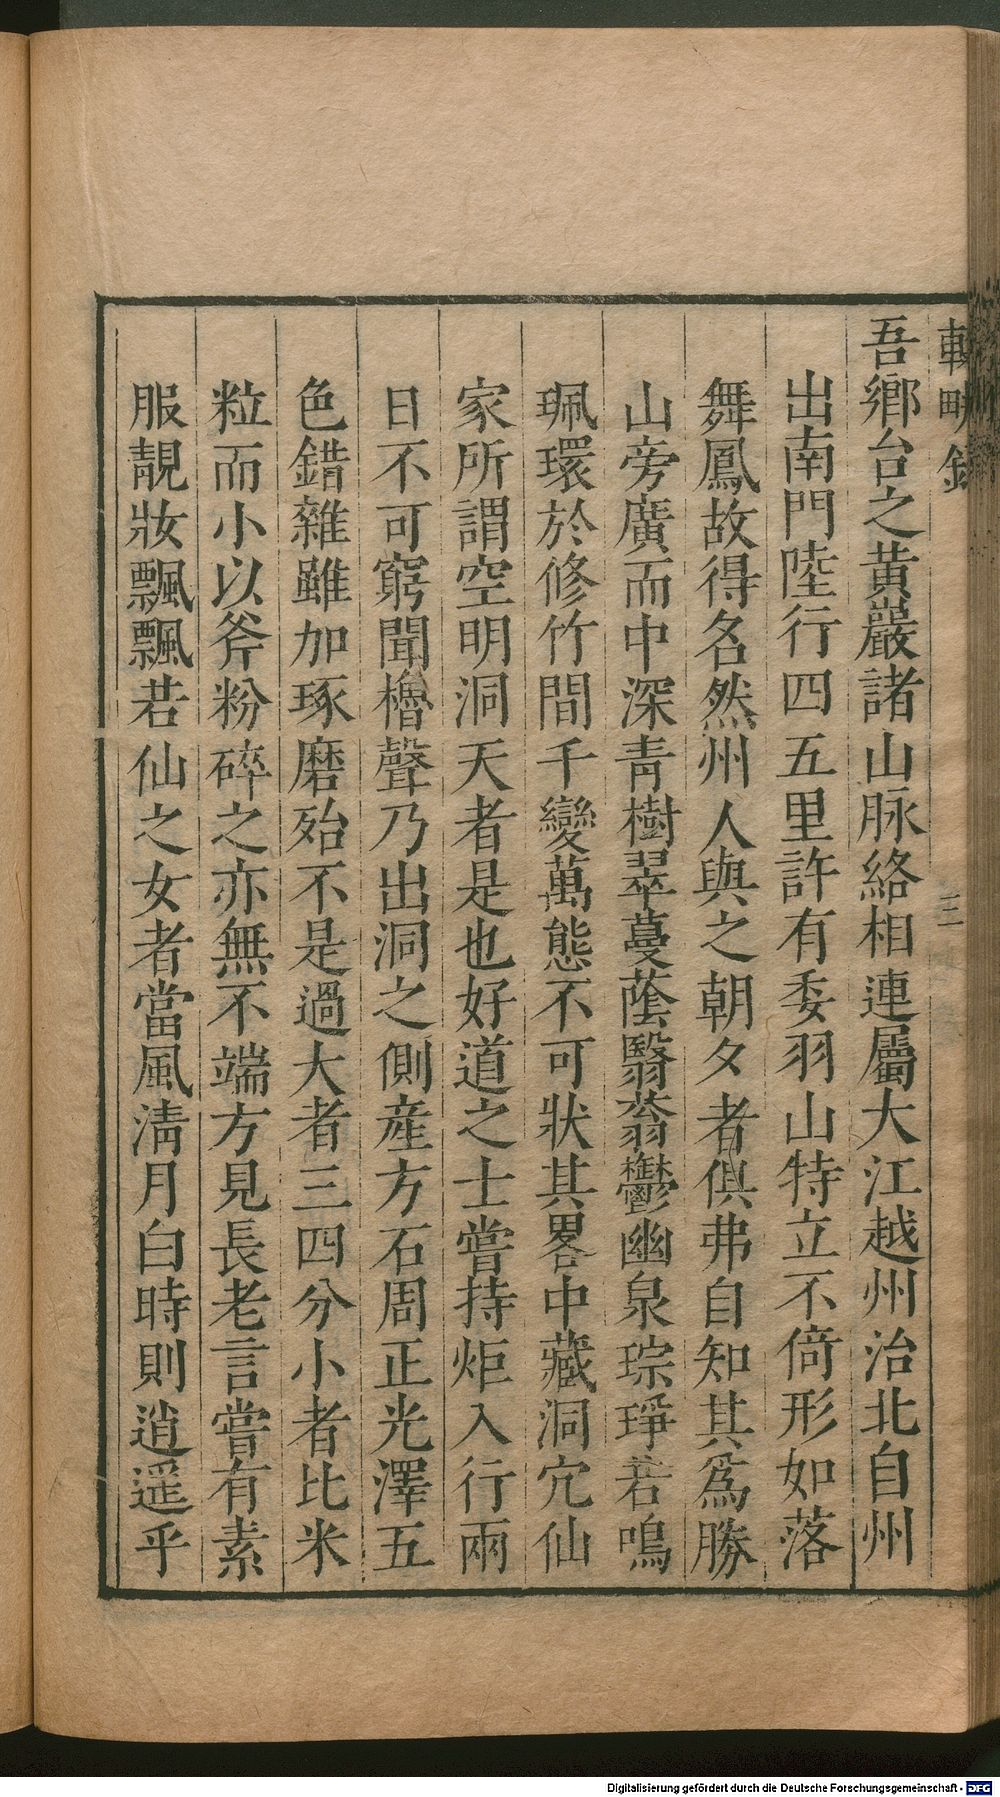 吾鄉台之黄巖諸山脉絡相連屬大江越州治北自州
出南門陸行四五里許有委羽山特立不倚形如落
舞鳳故得名然州人與之朝夕者俱弗自知其爲勝
山旁廣而中深青樹翠蔓蔭翳蓊鬱幽泉琮琤若鳴
珮環於修竹間千變萬態不可狀其畧中藏洞穴仙
家所謂空明洞天者是也好道之士嘗持炬入行兩
日不可窮聞櫓聲乃出洞之側産方石周正光澤五
色錯雜雖加琢磨殆不是過大者三四分小者比米
粒而小以斧粉碎之亦無不端方見長老言嘗有素
服靚妝飄飄若仙之女者當風清月白時則逍遥乎
三
Digitalisierung gefördert durch die Deutsche Forschungsgemeinschaft - DFG